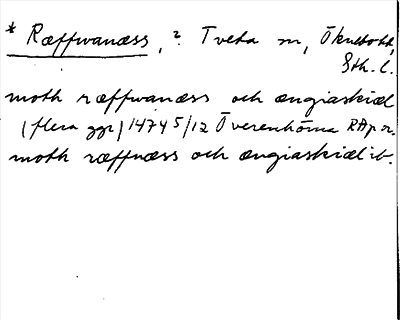 * Ræffwanæss, ? Tveta sn, Öknebohd,
Sth. l.
moth ræffwanæss och ængiaskiæl
(flera ggr) 1474 5/12 Överenhörna RAp or.
moth ræffnæss och ængiaskiæl ib.